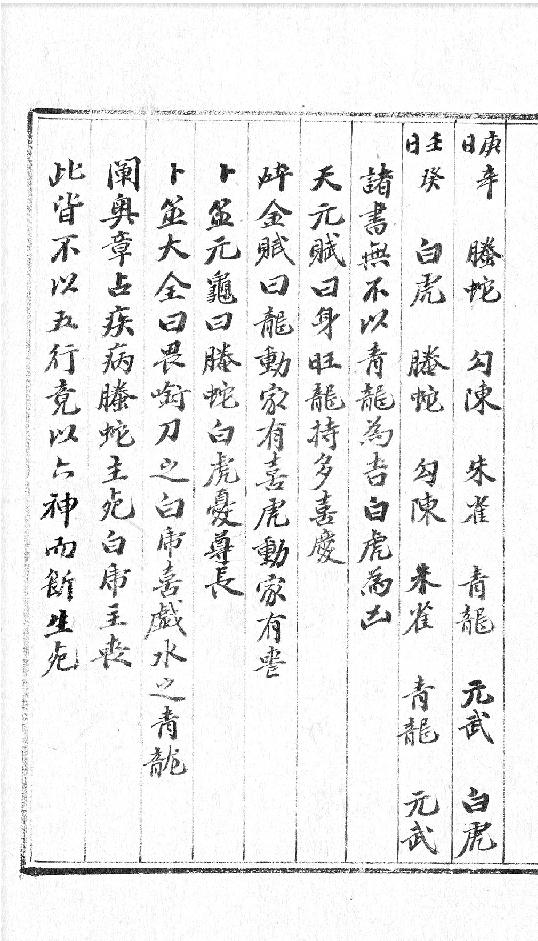 庚辛日 螣蛇 勾陳 朱雀 青龍 元武 白虎
壬癸日 白虎 螣蛇 勾陳 朱雀 青龍 元武
諸書無不以青龍為吉白虎為凶
天元賦曰身旺龍持多喜慶
碎金賦曰龍動家有喜虎動家有喪
卜筮元龜曰螣蛇白虎憂尊長
卜筮大全曰畏啣刀之白虎喜戲水之青龍
闡奧章占疾病螣蛇主死白虎主喪
此皆不以五行竟以六神而斷生死